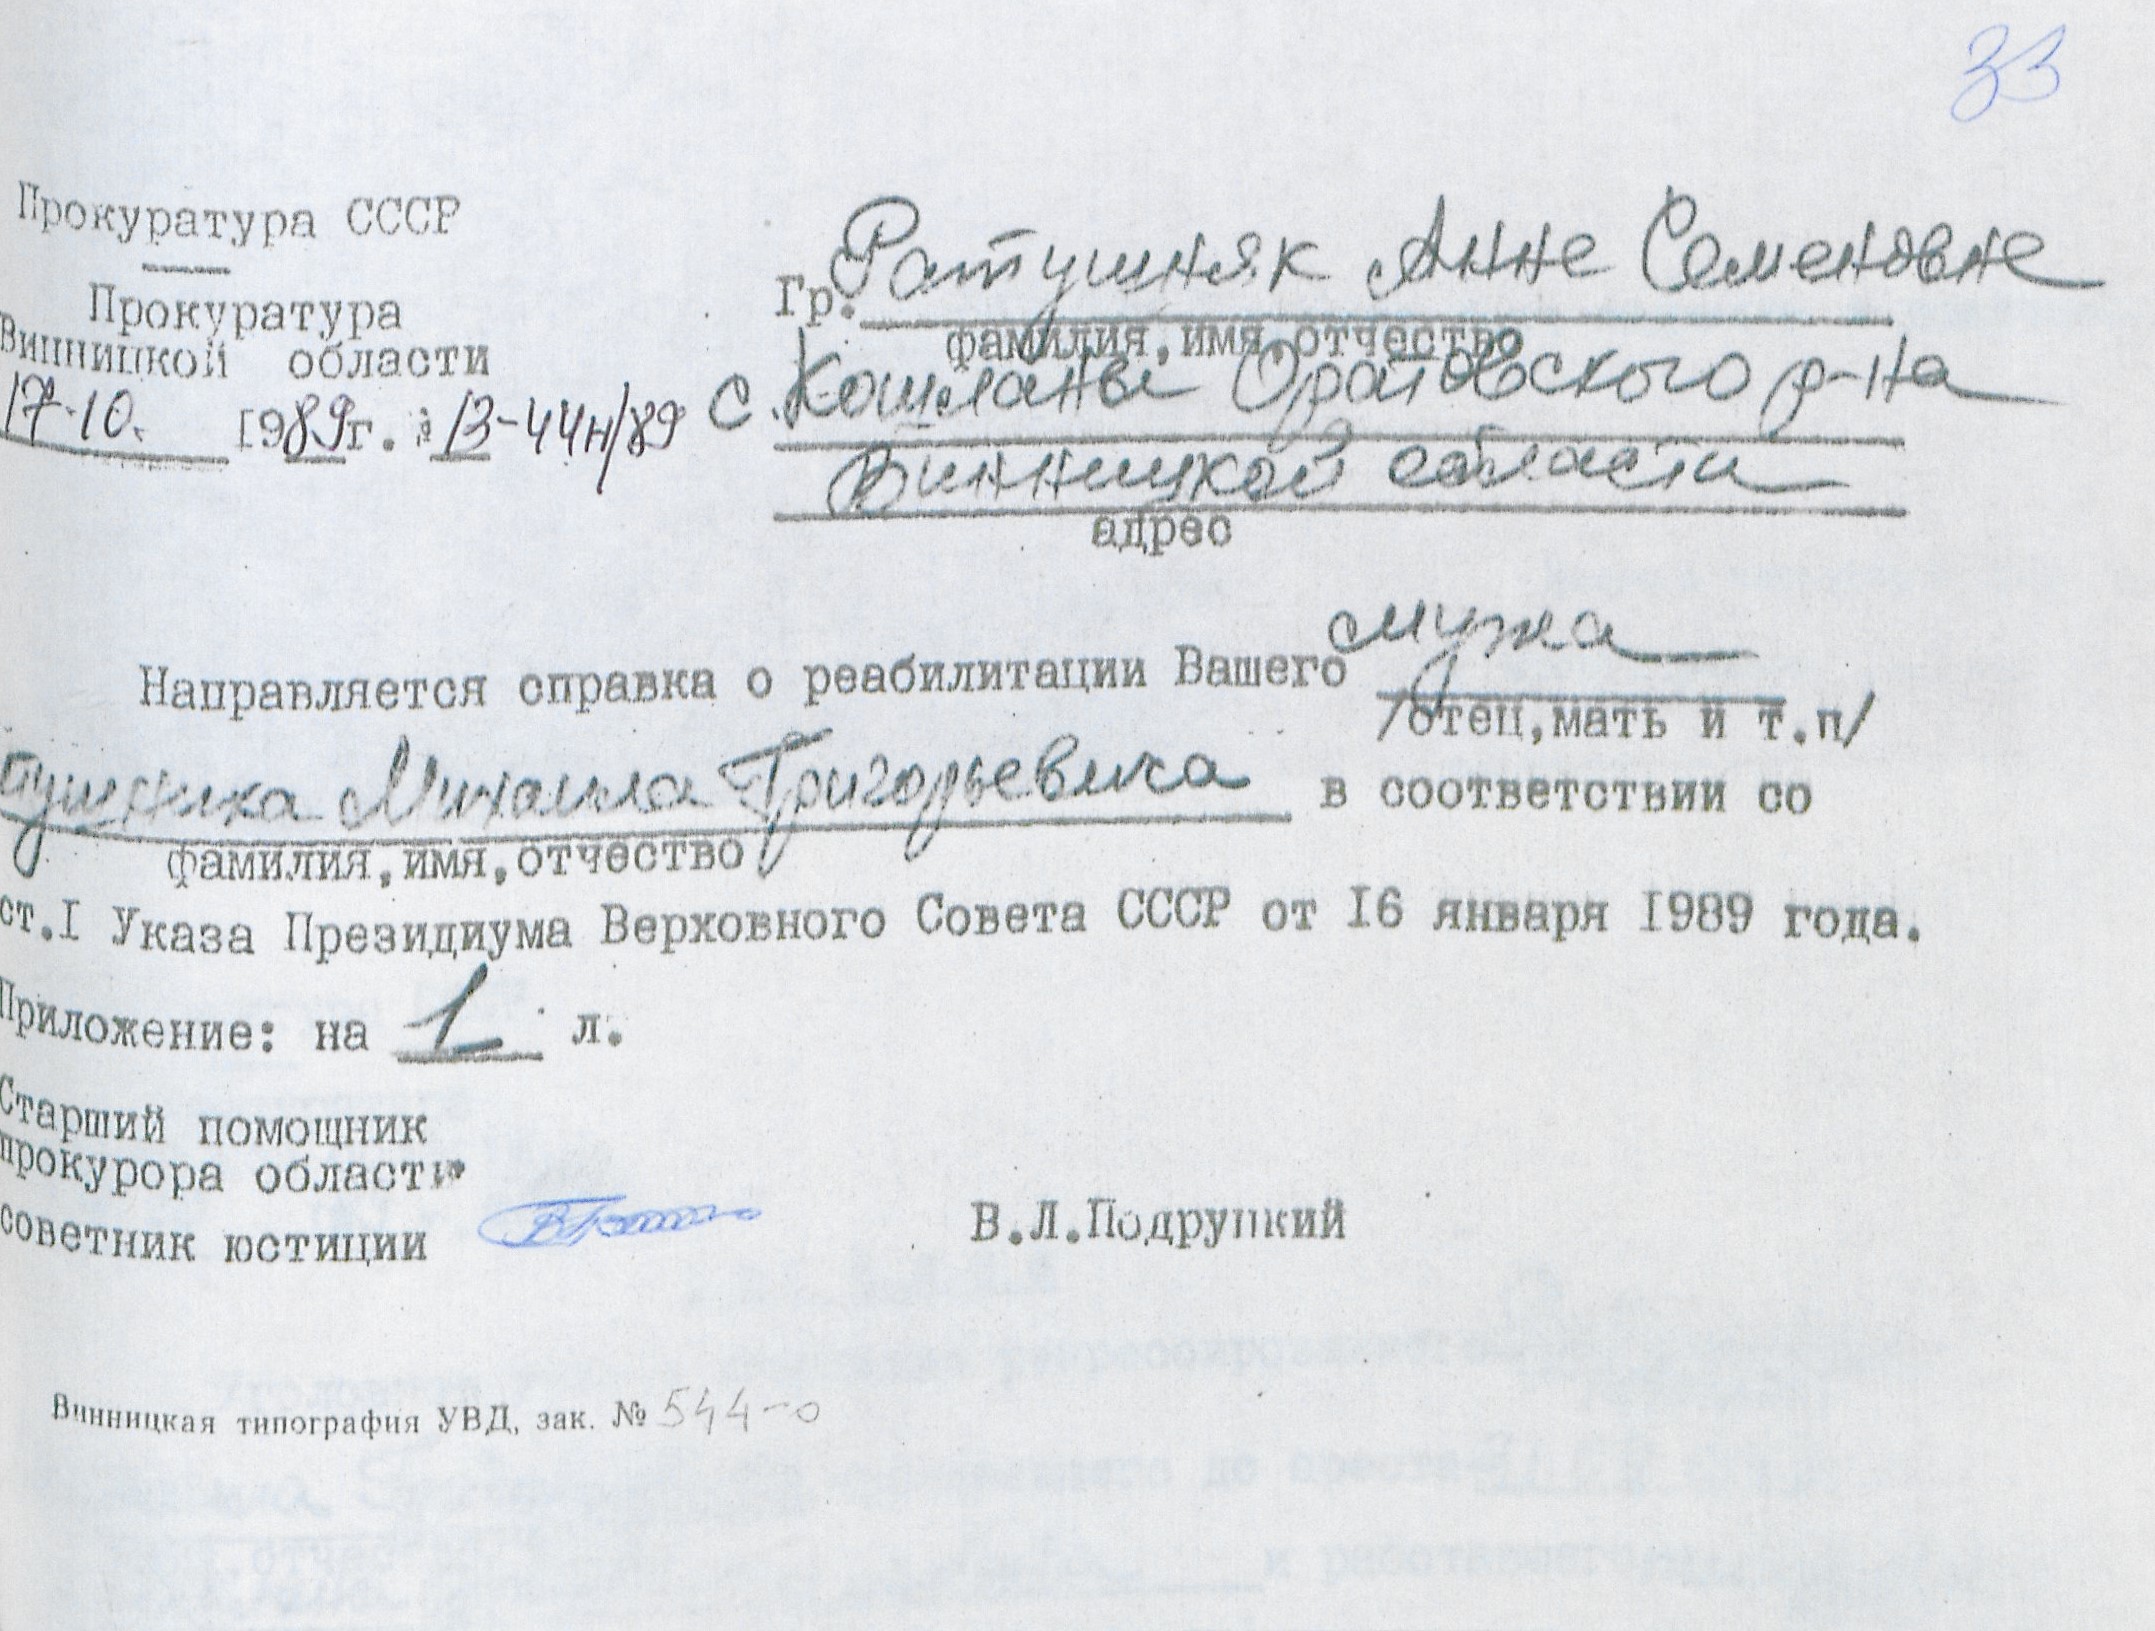 33
Прокуратура СССР
Прокуратура
Винницкой области
17-10. 1989г. № 13-44н/89
Гр. Ратушняк Анне Семеновне
фамилия, имя, отчество
с. Кошланы Оратовского р-на
Винницкой области
адрес
Направляется справка о реабилитации Вашего мужа
/отец, мать и т.п/
тушняка Михаила Григорьевича в соответствии со
фамилия, имя, отчество
ст.I Указа Президиума Верховного Совета СССР от I6 января I989 года.
Приложение: на 1 л.
Старший помощник
прокурора области
советник юстиции В.Л.Подруцкий
Винницкая типография УВД, зак. № 544-о